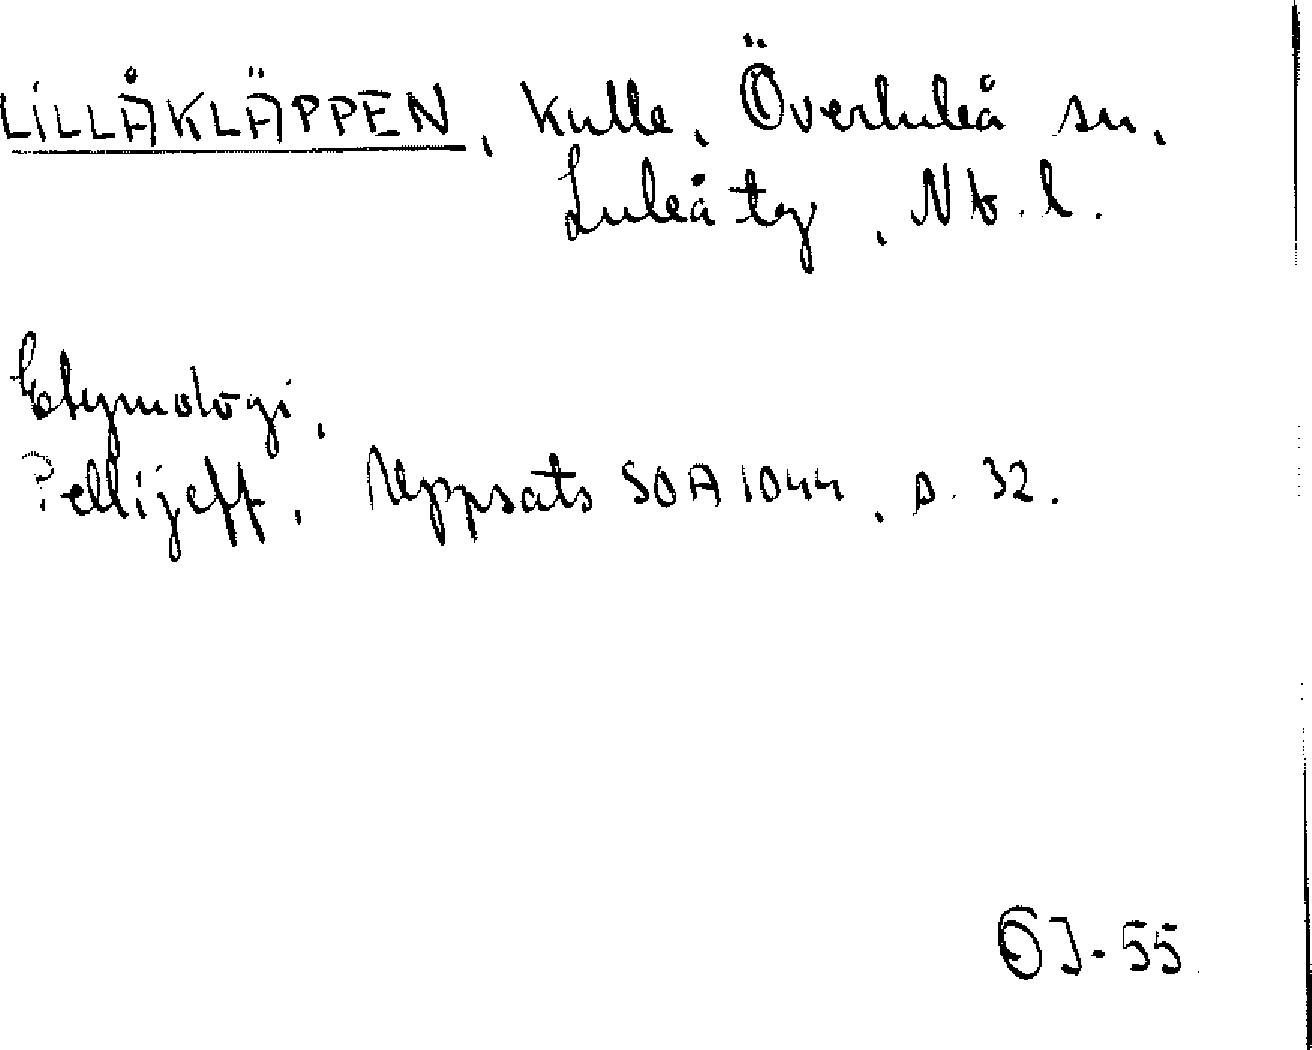 LILLÅKLÄPPEN, Kulle, Överluleå sn,
Luleå tg, Nb. l.
Etymologi,
Pellijeff, Uppsats SOA 1044, s. 32.
GJ-55